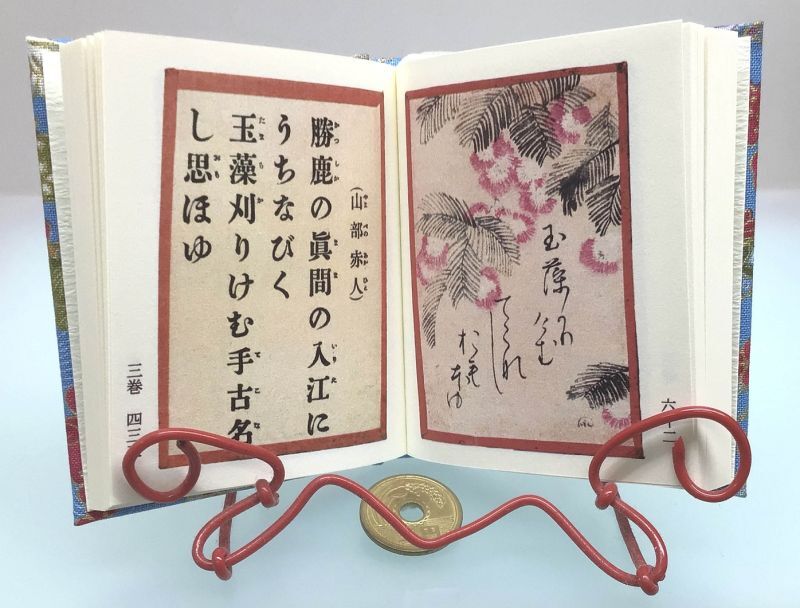 玉藻かりけむ
てこなし
おもほゆ
六十二
(山部赤人)
勝鹿の眞間の入江に
うちなびく
玉藻刈りけむ手古名
し思ほゆ
三巻 四三